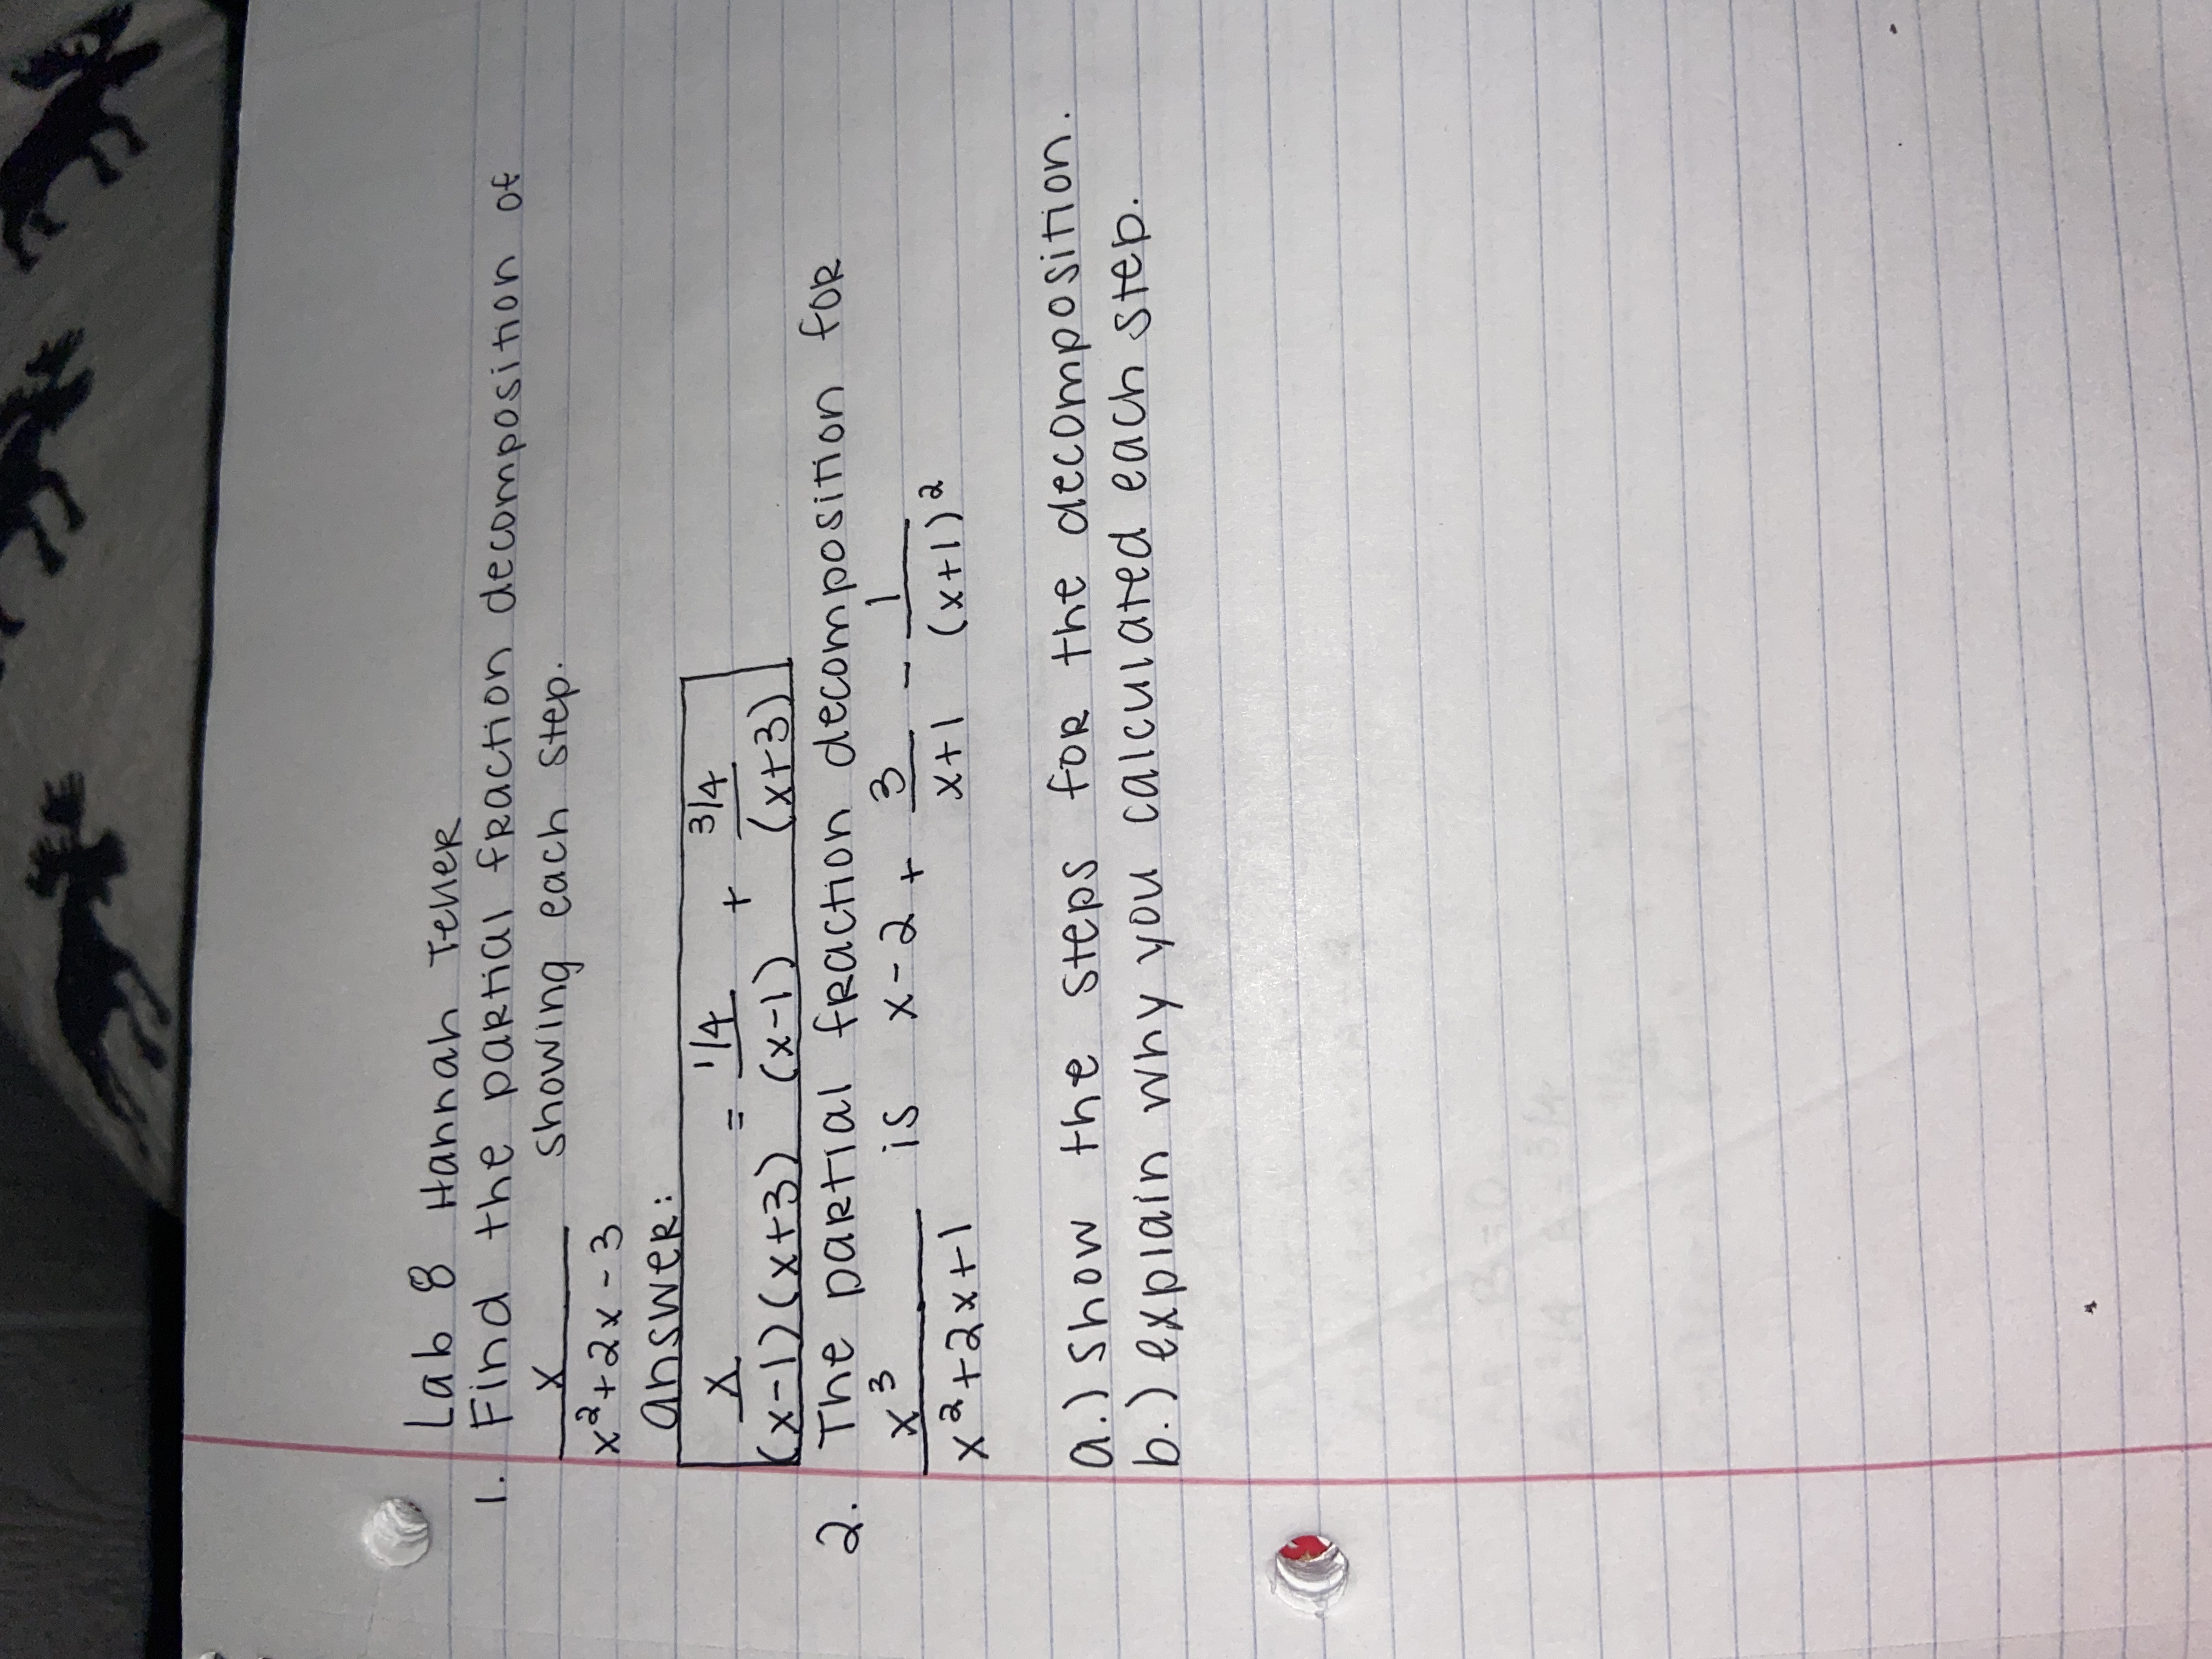 Lab 8 Hannah Teller
1. Find the partial fraction decomposition of
x/(x²+2x-3) showing each step.
answer:
x/((x-1)(x+3)) = 1/4/(x-1) + 3/4/(x+3)
2. The partial fraction decomposition for
x³/(x²+2x+1) is x-2 + 3/(x+1) - 1/(x+1)²
a.) show the steps for the decomposition.
b.) explain why you calculated each step.